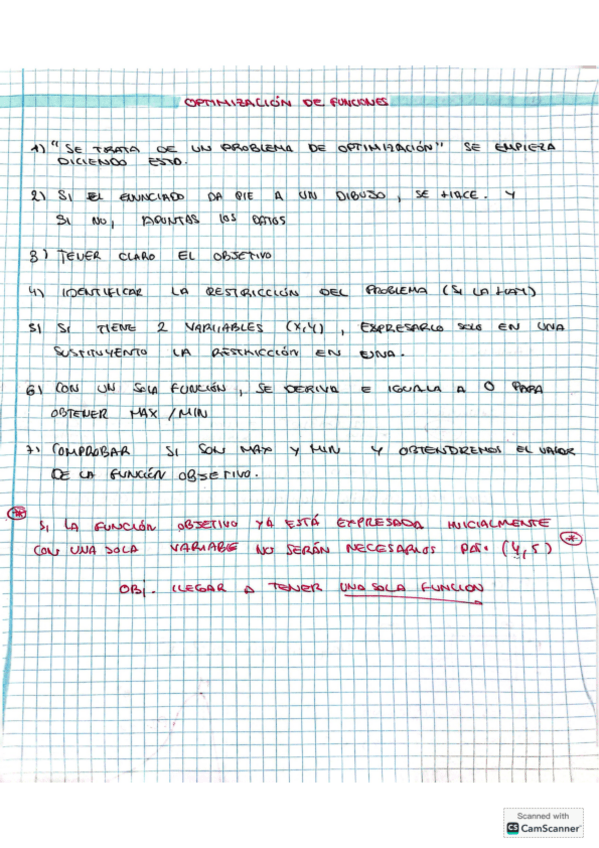 OPTIMIZACIÓN DE FUNCIONES
1) "SE TRATA DE UN PROBLEMA DE OPTIMIZACIÓN" SE EMPIEZA
DICIENDO ESTO.
2) SI EL ENUNCIADO DA PIE A UN DIBUJO, SE HACE. Y
SI NO, APUNTAS LOS DATOS
3) TENER CLARO EL OBJETIVO
4) IDENTIFICAR LA RESTRICCIÓN DEL PROBLEMA (SI LA HAY)
5) SI TIENE 2 VARIABLES (X,Y), EXPRESARLO SOLO EN UNA
SUSTITUYENTO LA RESTRICCIÓN EN UNA.
6) CON UN SOLA FUNCIÓN, SE DERIVA E IGUALA A 0 PARA
OBTENER MAX/MIN
7) COMPROBAR SI SON MAX Y MIN Y OBTENDREMOS EL VALOR
DE LA FUNCIÓN OBJETIVO.
* SI LA FUNCIÓN OBJETIVO YA ESTÁ EXPRESADA INICIALMENTE
CON UNA SOLA VARIABLE NO SERÁN NECESARIOS PAS. (4,5) *
OBJ. LLEGAR A TENER UNA SOLA FUNCION
Scanned with
CS CamScanner